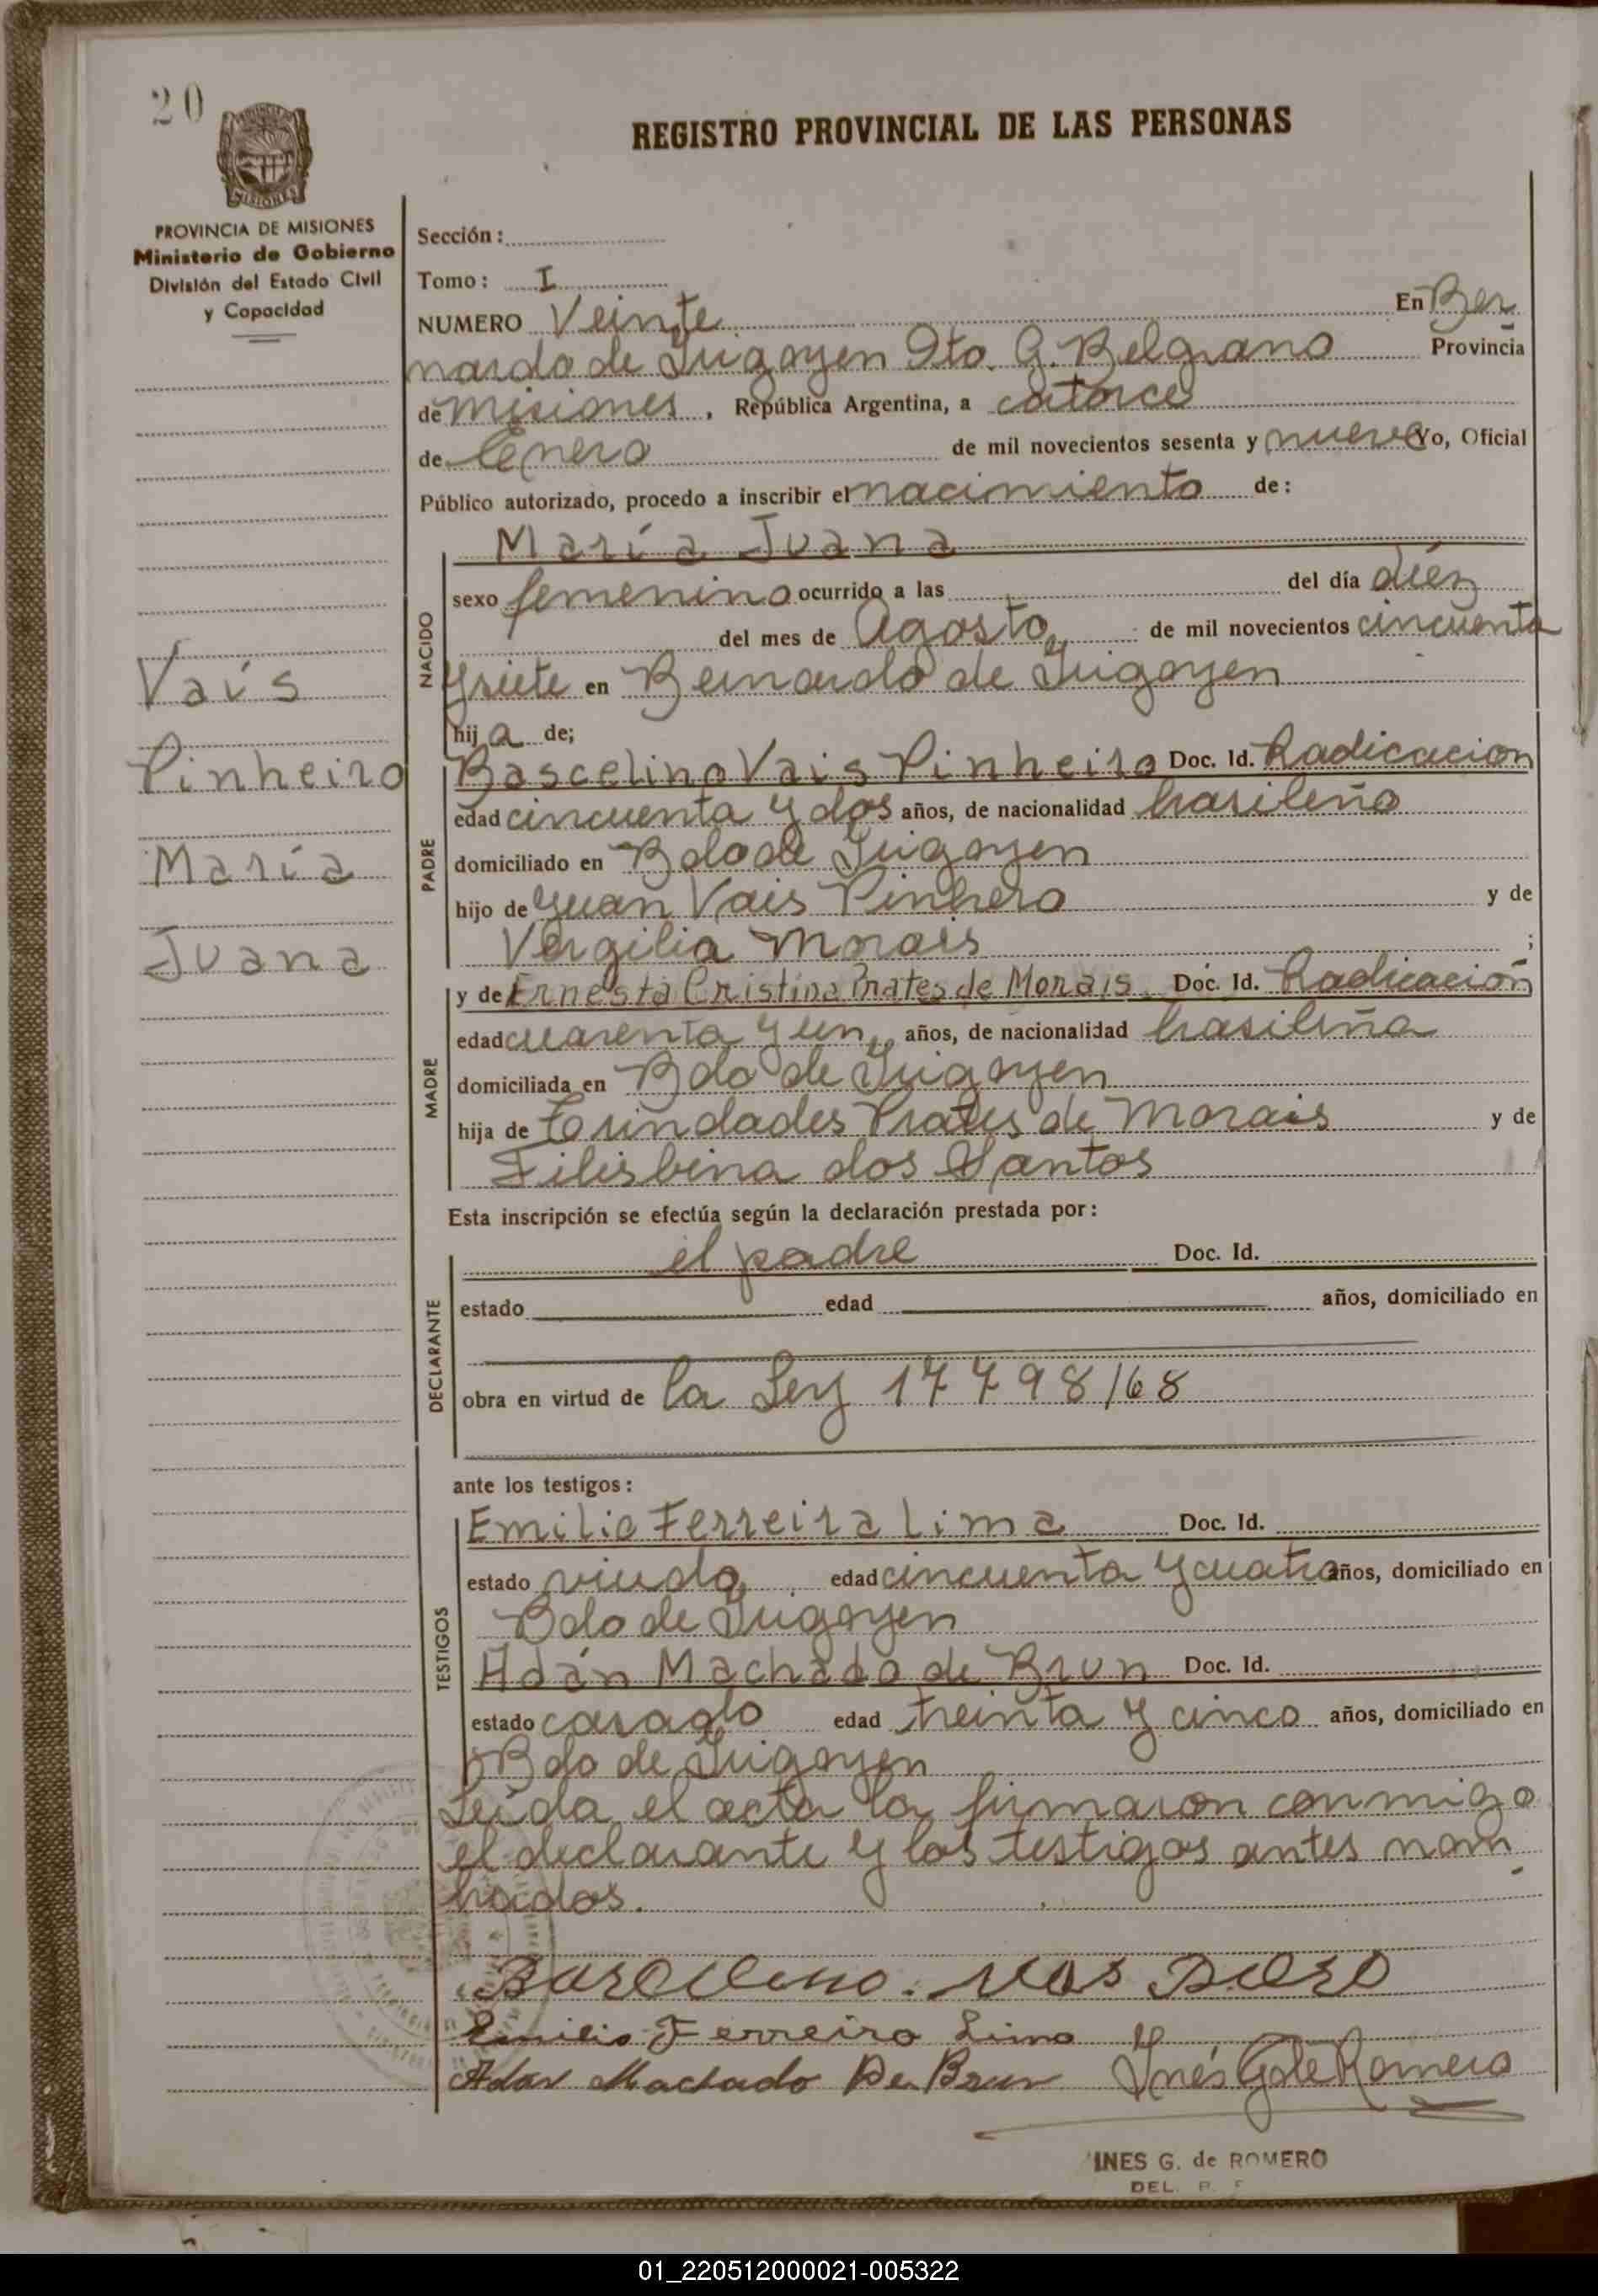 20
REGISTRO PROVINCIAL DE LAS PERSONAS
PROVINCIA DE MISIONES
Ministerio de Gobierno
División del Estado Civil
y Capacidad
Sección:
Tomo: I
NUMERO Veinte En Ber
nardo de Irigoyen Dto. G. Belgrano Provincia
de Misiones, República Argentina, a catorce
de Enero de mil novecientos sesenta y nueve Yo, Oficial
Público autorizado, procedo a inscribir el nacimiento de:
María Juana
NACIDO
sexo femenino ocurrido a las del día diéz
del mes de Agosto de mil novecientos cincuenta
y siete en Bernardo de Irigoyen
hija de;
Vaís
Pinheiro
María
Juana
PADRE
Bascelino Vais Pinheiro Doc. Id. Radicacion
edad cincuenta y dos años, de nacionalidad brasileño
domiciliado en Bdo de Irigoyen
hijo de Juan Vais Pinhero y de
Vergilia Morais ;
MADRE
y de Ernesta Cristina Prates de Morais Doc. Id. Radicación
edad cuarenta y un años, de nacionalidad brasileña
domiciliada en Bdo de Irigoyen
hija de Trindades Prates de Morais y de
Filisbina dos Santos
Esta inscripción se efectúa según la declaración prestada por:
DECLARANTE
el padre Doc. Id.
estado edad años, domiciliado en
obra en virtud de la Ley 17798/68
ante los testigos:
TESTIGOS
Emilio Ferreira Lima Doc. Id.
estado viudo edad cincuenta y cuatro años, domiciliado en
Bdo de Irigoyen
Adán Machado de Brun Doc. Id.
estado casado edad treinta y cinco años, domiciliado en
Bdo de Irigoyen
Leída el acta la firmaron conmigo
el declarante y los testigos antes nom
brados.
Emilio Ferreira Lima
Adan Machado De Brun Inés G de Romero
INES G. de ROMERO
DEL. R.
01_220512000021-005322